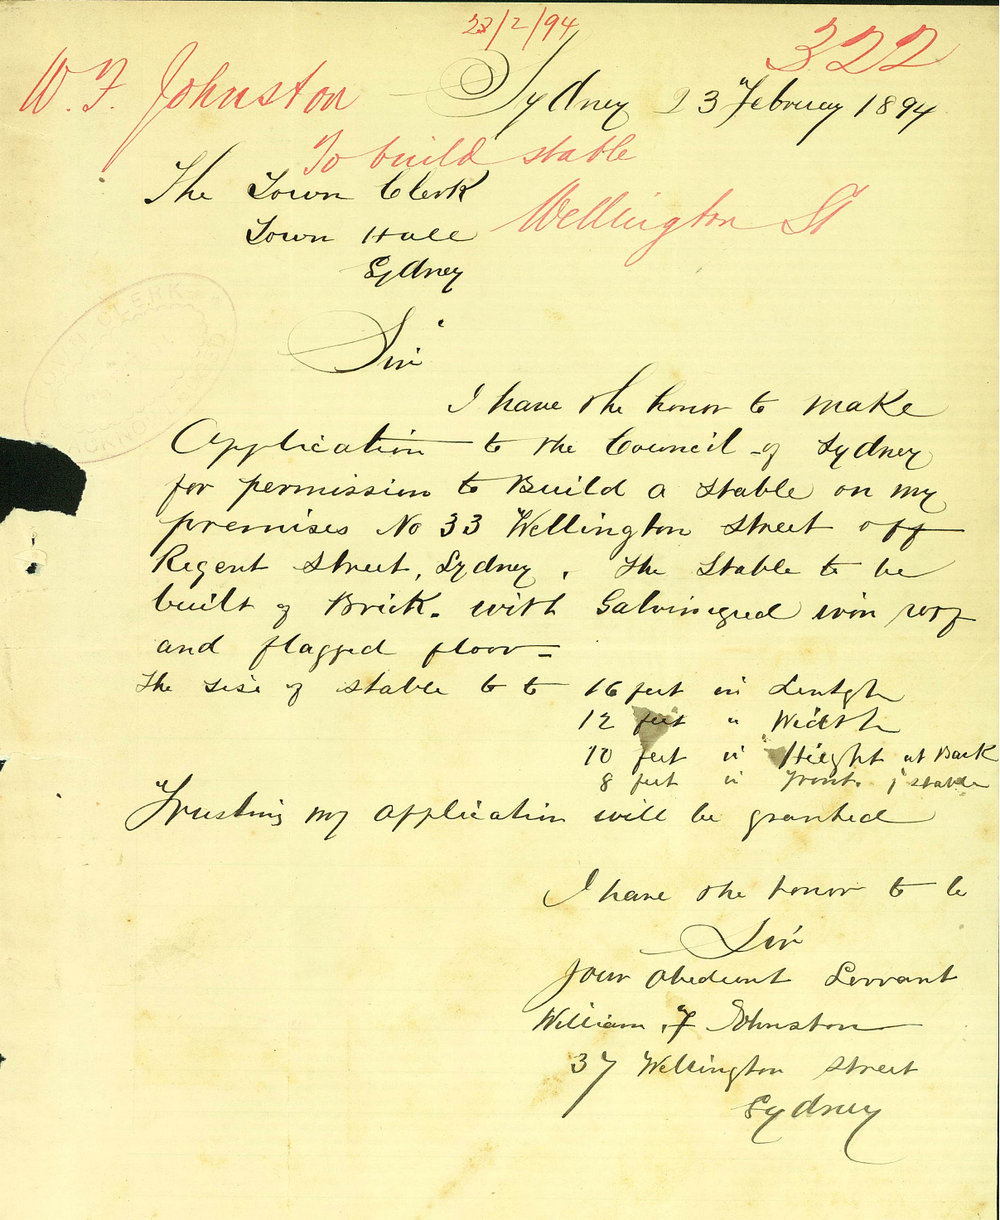 23/2/94
322
W. F. Johnston
Sydney 23 February 1894
To build stable
The Town Clerk
Wellington St
Town Hall
Sydney
Sir
TOWN CLERK
I have the honor to make
Application to the Council of Sydney
for permission to Build a stable on my
premises No 33 Wellington street off
Regent street, Sydney. The Stable to be
built of Brick. with Galvinezed iron roof
and flagged floor =
The size of stable to be 16 feet in Lentgh
12 feet " Width
10 feet in Height at Back
8 feet in Front. of stable
Trusting my application will be granted
I have the honor to be
Sir
Your Obedient Servant
William. F Johnston
37 Wellington street
Sydney